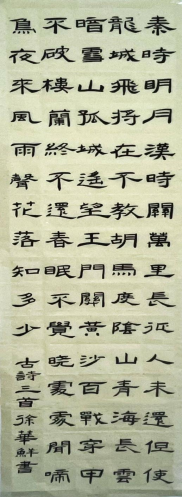 秦時明月漢時關萬里長征人未還但使
龍城飛將在不教胡馬度陰山青海長雲
暗雪山孤城遙望王門關黃沙百戰穿甲
不破樓蘭終不還春眠不覺曉處處聞啼
鳥夜來風雨聲花落知多少
古詩三首徐華鮮書